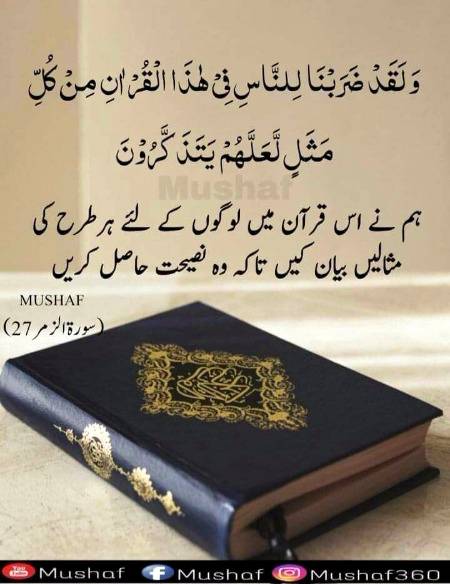 وَلَقَدْ ضَرَبْنَا لِلنَّاسِ فِیْ هٰذَا الْقُرْاٰنِ مِنْ كُلِّ
مَثَلٍ لَّعَلَّهُمْ يَتَذَكَّرُوْنَ
Mushaf
ہم نے اس قرآن میں لوگوں کے لئے ہر طرح کی
مثالیں بیان کیں تاکہ وہ نصیحت حاصل کریں
MUSHAF
(سورۃ الزمر 27)
You Tube Mushaf f Mushaf Mushaf360